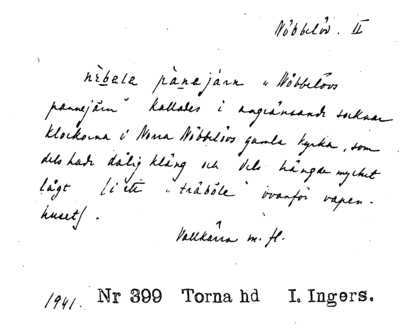 Nöbbelöv. II
nèbela pànejärn "Nöbbelövs
pannejärn" kallades i angränsande socknar
klockorna i Norra Nöbbelövs gamla kyrka, som
dels hade dålig klång och dels hängde mycket
lågt (i ett "träböle" ovanför vapen-
huset).
Vallkärra m. fl.
1941. Nr 399 Torna hd I. Ingers.